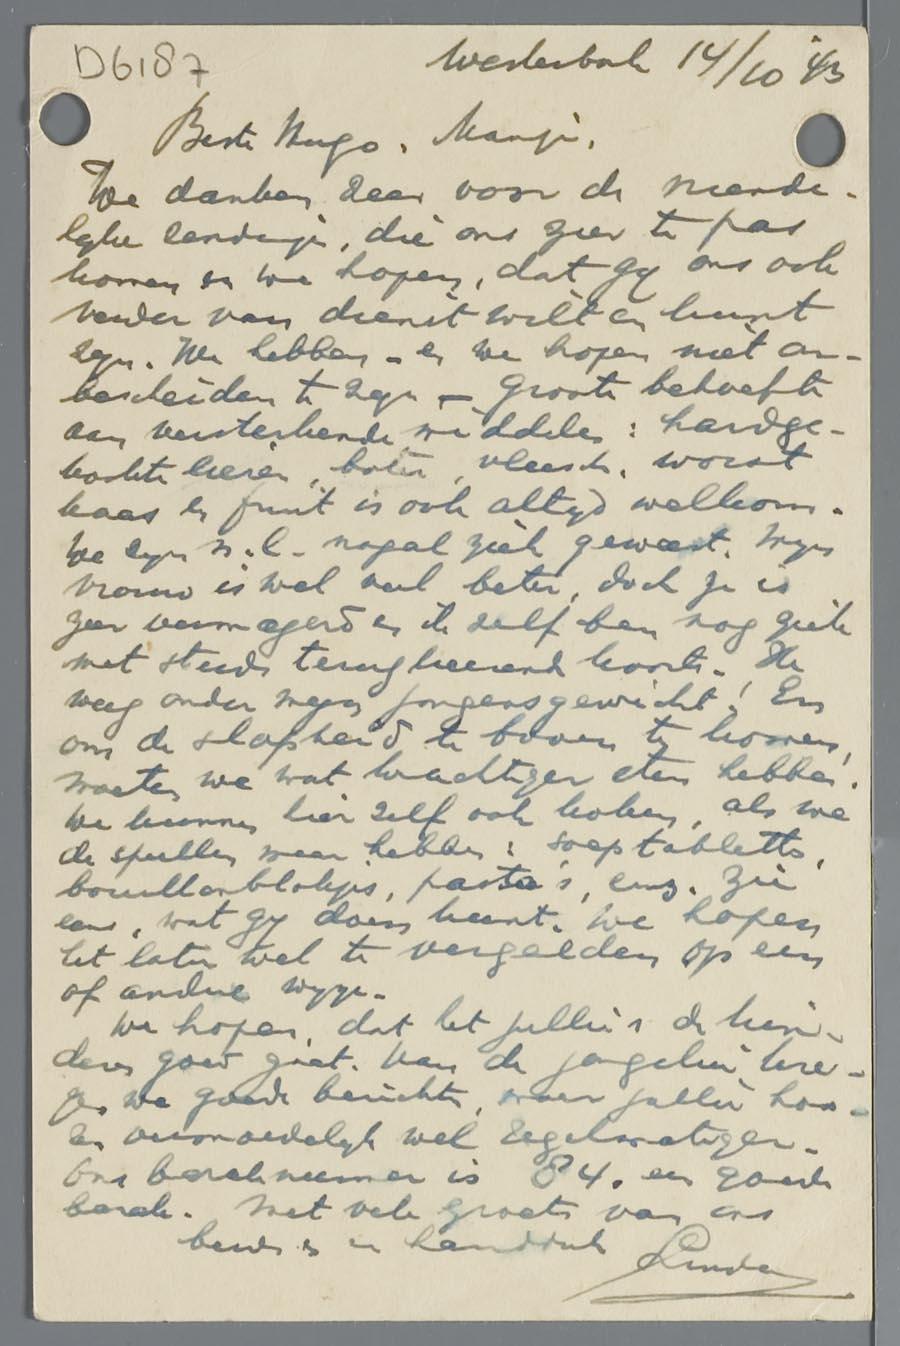 D6187
Westerbork 14/10 '43
Beste Hugo, Mansje,
We danken zeer voor de vriende-
lyke zendinge, die ons zeer te pas
komen en we hopen, dat gy ons ook
verder van dienst wilt en kunt
zyn. We hebben – en we hopen niet on-
bescheiden te zyn – groote behoefte
aan versterkende middelen: hardge-
kookte eieren, boter, vleesch, worst
kaas en fruit is ook altyd welkom.
We zyn n.l. nogal ziek geweest. Myn
vrouw is wel veel beter, doch ze is
zeer vermagerd en ik zelf ben nog ziek
met steeds terugkeerende koorts. Ik
weeg onder myn jongensgewicht! En
om de slapheid te boven te komen,
moeten we wat krachtiger eten hebben.
We kunnen hier zelf ook koken, als we
de spullen maar hebben: soeptabletten,
bouillonblokjes, pasta's, enz. Zie
eens, wat gy doen kunt. We hopen
het later wel te vergelden op een
of andere wyze.
We hopen, dat het jullie & de kin-
deren goed gaat. Van de jongelui kre-
gen we goede berichten, maar jullie hoo-
ren vermoedelyk wel regelmatiger.
Ons baraknummer is 84, een goede
barak. Met vele groeten van ons
beide & een handdruk